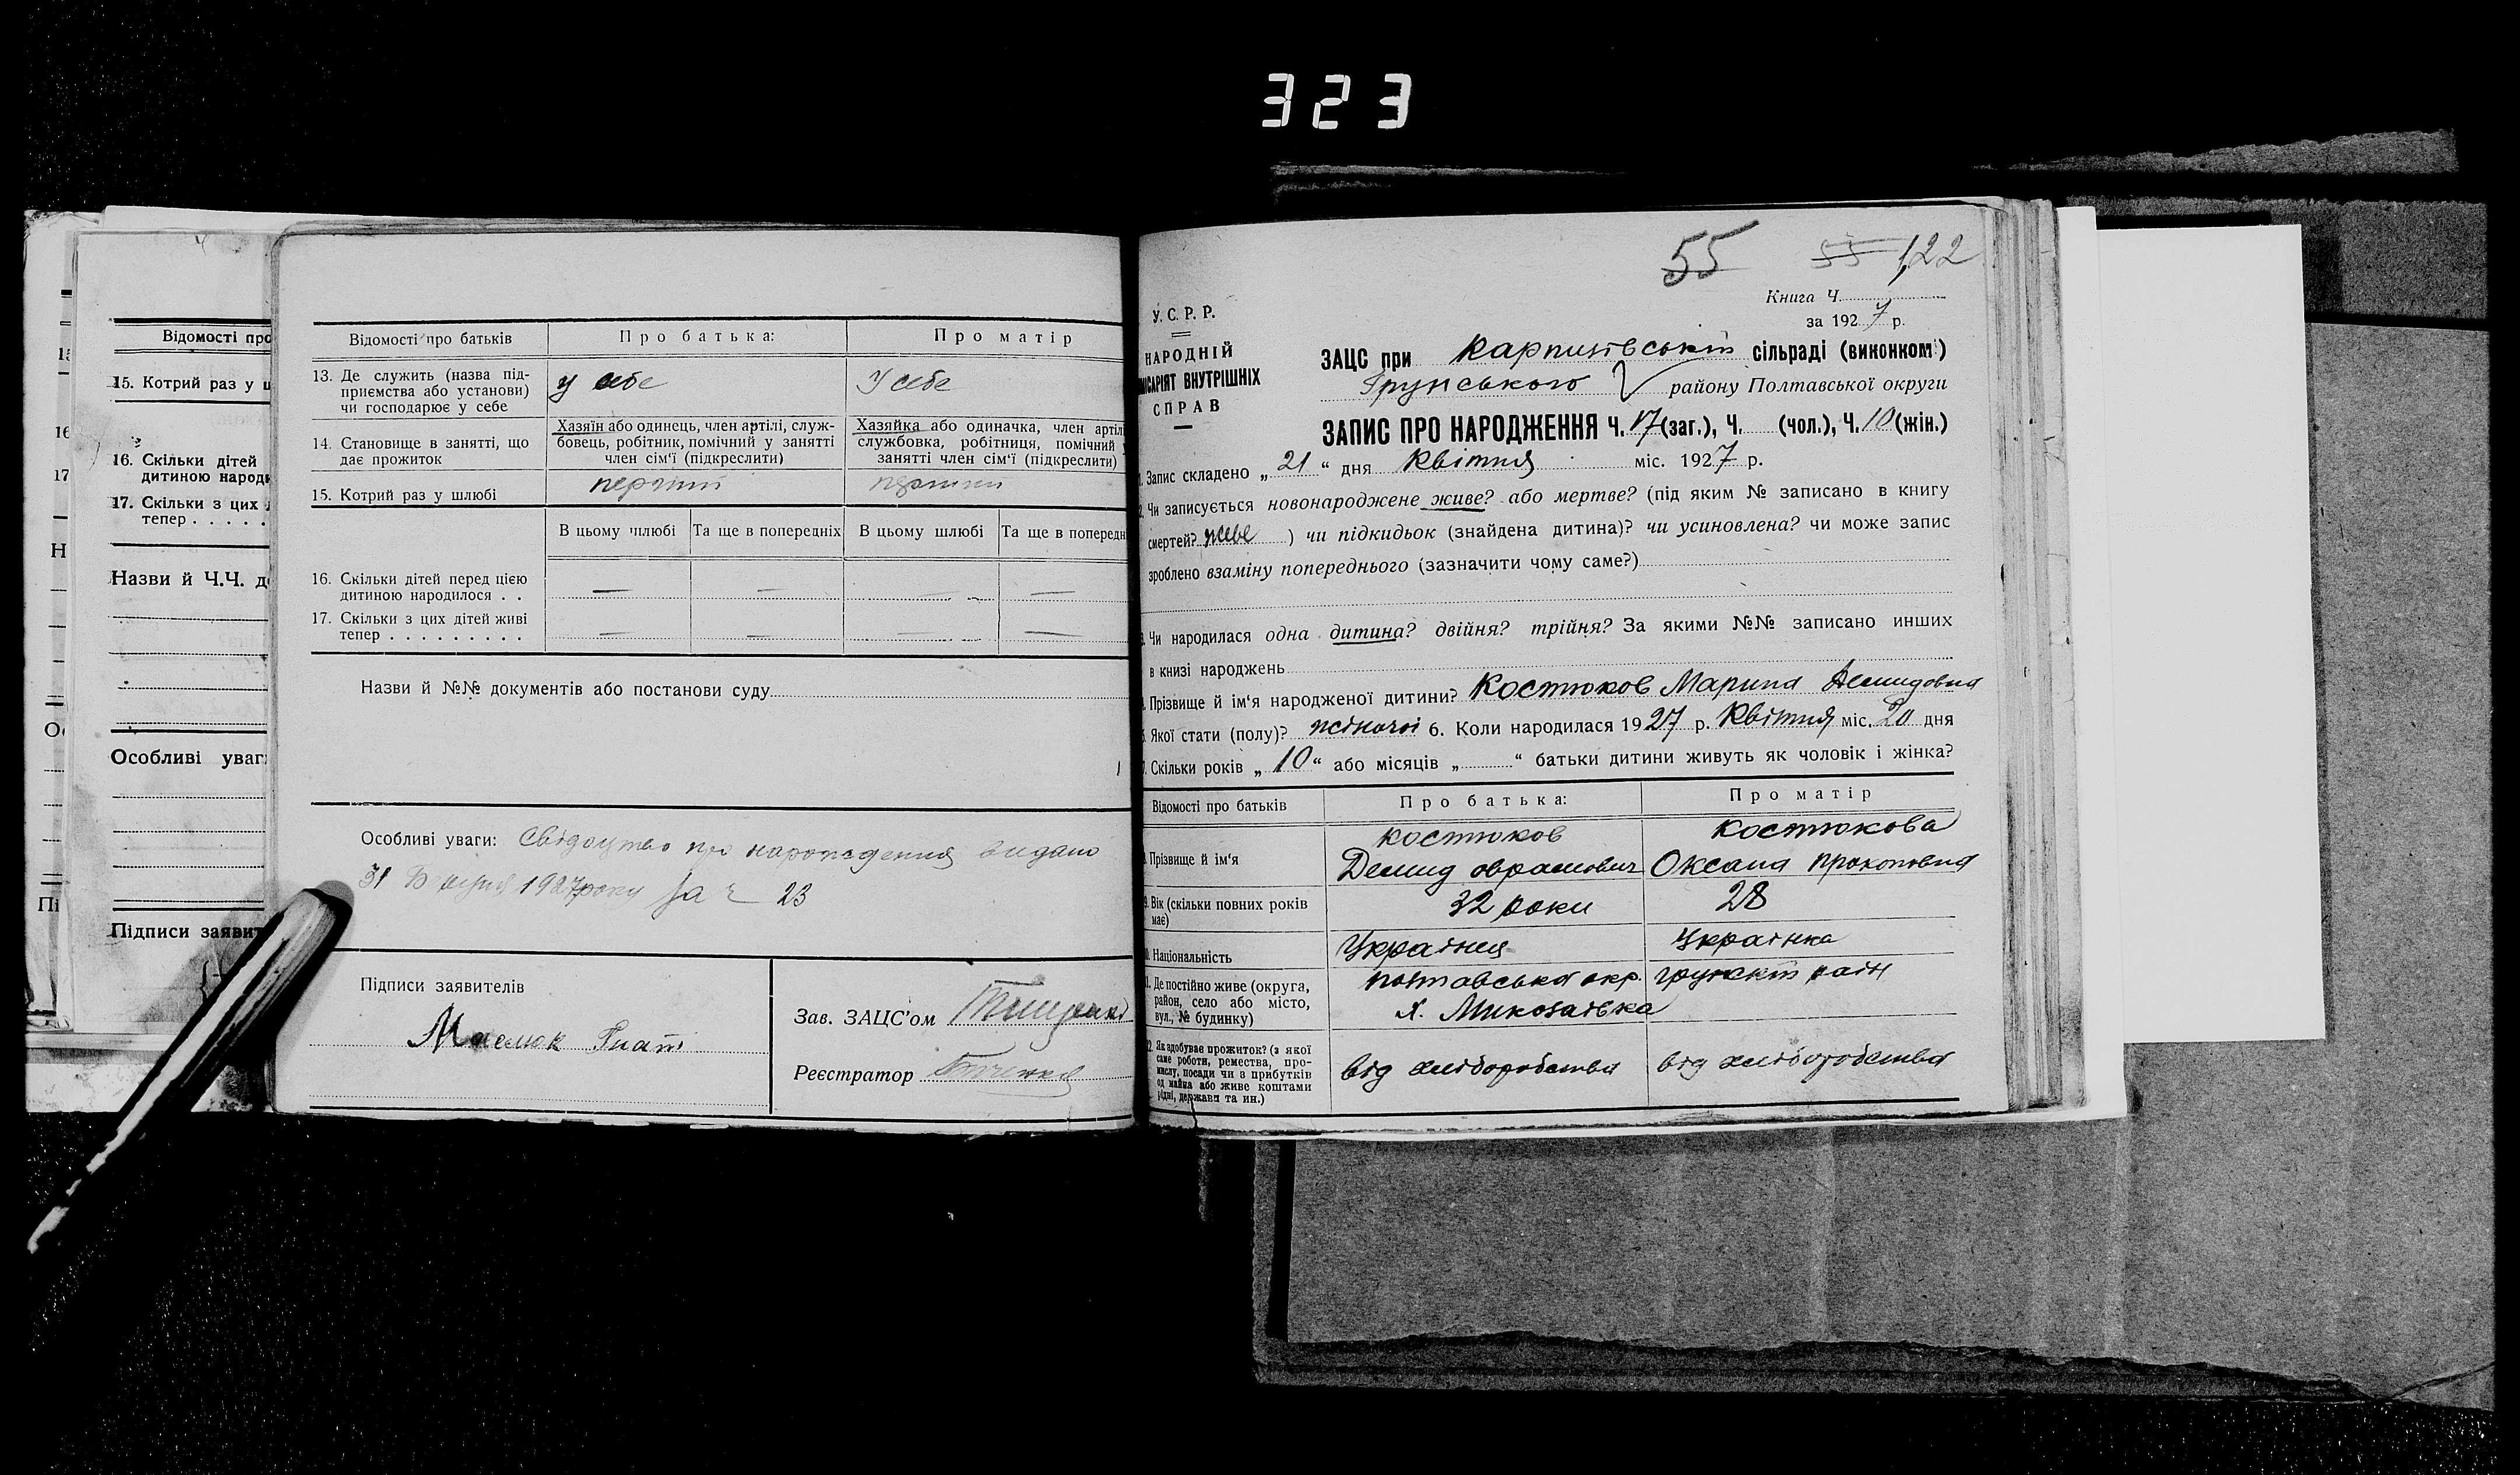 323
Відомості про
15. Котрий раз у ш
16. Скільки дітей
дитиною народ
17. Скільки з цих
тепер . . . . .
Назви й Ч.Ч. д
Особливі уваг
Підписи заявит
Відомості про батьків
Про батька:
Про матір
13. Де служить (назва під-
приємства або установи)
чи господарює у себе
у себе
У себе
14. Становище в занятті, що
дає прожиток
Хазяїн або одинець, член артілі, служ-
бовець, робітник, помічний у занятті
член сім'ї (підкреслити)
Хазяйка або одиначка, член артіл
службовка, робітниця, помічний у
занятті член сім'ї (підкреслити)
15. Котрий раз у шлюбі
перший
В цьому шлюбі
Та ще в попередніх
В цьому шлюбі
Та ще в попередн
16. Скільки дітей перед цією
дитиною народилося . .
— — — —
17. Скільки з цих дітей живі
тепер . . . . . . . . .
— — — —
Назви й №№ документів або постанови суду
Особливі уваги: Свідоцтво про народження видано
31 1927 року за ч 23
Підписи заявителів
Зав. ЗАЦС'ом
Реєстратор
55 55 122
Книга Ч.
за 1927 р.
У. С. Р. Р.
НАРОДНІЙ
ІСАРІЯТ ВНУТРІШНІХ
СПРАВ
ЗАЦС при Карпилівській сільраді (виконком)
Грунського району Полтавської округи
ЗАПИС ПРО НАРОДЖЕННЯ Ч. 17 (заг.), Ч. (чол.), Ч. 10 (жін.)
Запис складено „21“ дня Квітня міс. 1927 р.
Чи записується новонароджене живе? або мертве? (під яким № записано в книгу
смертей? живе ) чи підкидьок (знайдена дитина)? чи усиновлена? чи може запис
зроблено взаміну попереднього (зазначити чому саме?)
Чи народилася одна дитина? двійня? трійня? За якими №№ записано инших
в книзі народжень
Прізвище й ім'я народженої дитини? Костюков Марина Демидовна
Якої стати (полу)? жіночоі 6. Коли народилася 1927 р. Квітня міс. 20 дня
Скільки років „10“ або місяців „ “ батьки дитини живуть як чоловік і жінка?
Відомості про батьків
Про батька:
Про матір
Прізвище й ім'я
костюков
Демид
костюкова
Оксана прокоповна
Вік (скільки повних років
має)
32 роки
28
Національність
Українец
Українка
Де постійно живе (округа,
район, село або місто,
вул., № будинку)
полтавська окр. грунскій раін
х. Миколаівка
Як здобуває прожиток? (з якої
саме роботи, ремества, про-
мислу, посади чи з прибутків
од майна або живе коштами
рідні, держави та ин.)
від хліборобства
від хліборобства